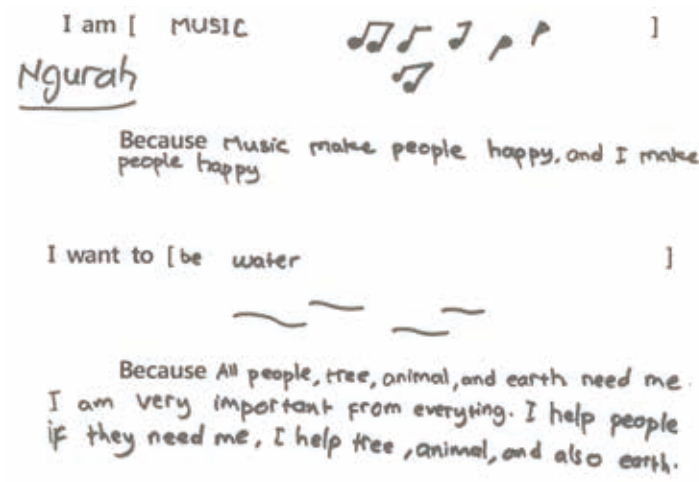 I am [ MUSIC ]
Ngurah
Because Music make people happy, and I make
people happy
I want to [be water ]
Because All people, tree, animal, and earth need me.
I am very important from everyting. I help people
if they need me, I help tree, animal, and also earth.